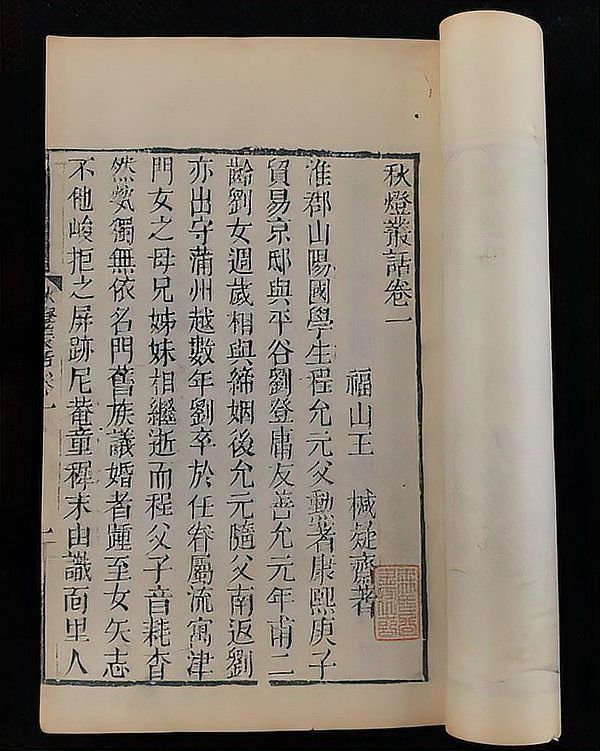 秋燈叢話卷一
福山王 椷凝齋著
淮郡山陽國學生程允元父勳著康熙庚子
貿易京邸與平谷劉登庸友善允元年甫二
齡劉女週歲相與締姻後允元隨父南返劉
亦出守蒲州越數年劉卒於任眷屬流寓津
門女之母兄姊妹相繼逝而程父子音耗杳
然煢獨無依名門舊族議婚者踵至女矢志
不他峻拒之屏跡尼菴童稺末由識面里人